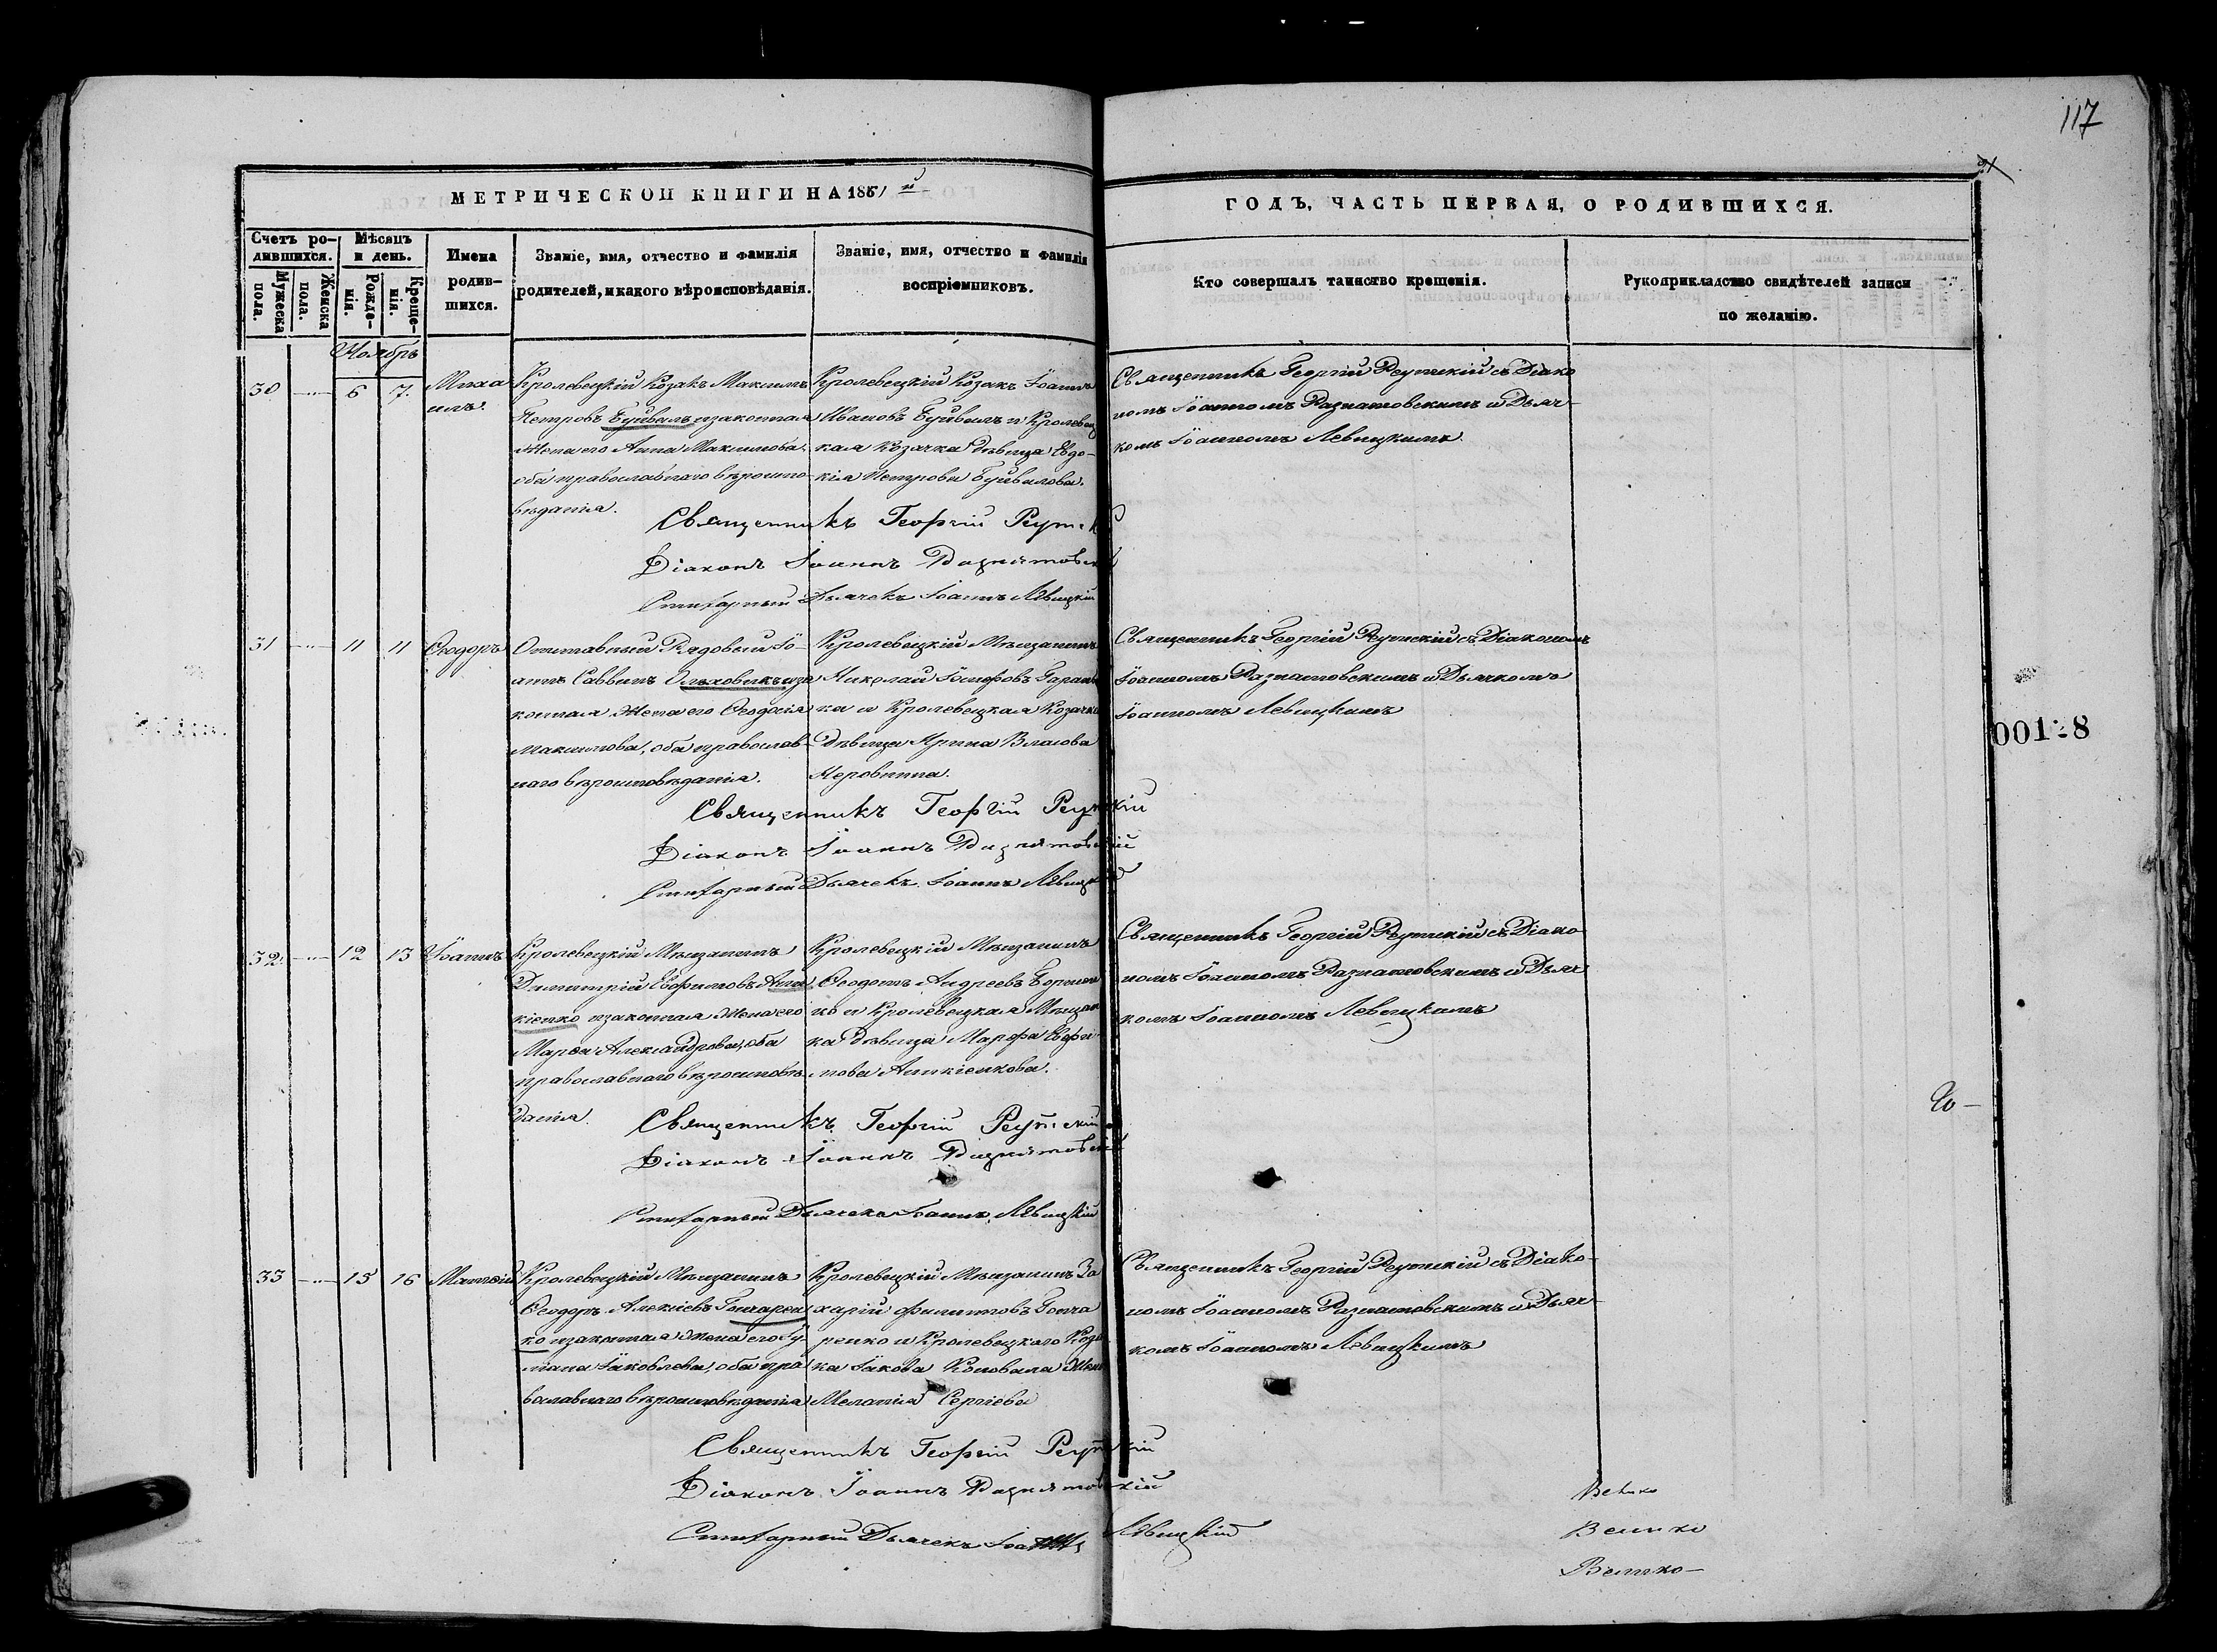 117
МЕТРИЧЕСКОЙ КНИГИ НА 185
ГОДЪ, ЧАСТЬ ПЕРВАЯ, О РОДИВШИХСЯ.
Счетъ ро-
дившихся.
Мужеска
пола.
Женска
пола.
Мѣсяцъ
и день.
Рожде-
нія.
Креще-
нія.
Имена
родив-
шихся.
Званіе, имя, отчество и фамилія
родителей, и какого вѣроисповѣданія.
Званіе, имя, отчество и фамилія
воспріемниковъ.
Кто совершалъ таинство крещенія.
Рукоприкладство свидѣтелей записи
по желанію.
Ноябрь
30 6 7.
Миха
илъ.
Кролевецкій Козакъ Максимъ
Петровъ Буйвалъ изаконная
Жена его Анна Максимова,
оба православнаго вѣроиспо-
вѣданія.
Кролевецкій Козакъ Іоаннъ
Ивановъ Буйвалъ и Кролевец
кая Козачка дѣвица Евдо-
кія Петрова Буйвалова.
Священникъ Георгій Реутскій съ Діако
номъ Іоанномъ Разнатовскимъ и Дьяч-
комъ Іоанномъ Левицкимъ.
Священникъ Георгій Реутск
Діаконъ Іоаннъ Разнатовск
Стихарный Дьячекъ Іоаннъ Левицкій
31 11 11 Ѳеодоръ
Отставный Рядовый Іо-
аннъ Саввинъ Ольховикъ иза
конная Жена его Ѳеодосія
Максимова, оба православ-
наго вѣроисповѣданія.
Кролевецкій Мѣщанинъ
Николай Іосифовъ Гаранъ
ка и Кролевецкая Козачка
дѣвица Ирина Власова
Священникъ Георгій Реутскій съ Діакономъ
Іоанномъ Разнатовскимъ и Дьячкомъ
Іоанномъ Левицкимъ
Священникъ Георгій Реутскій
Діаконъ Іоаннъ Разнатовскій
Стихарный Дьячекъ Іоаннъ Левицкій
32. 12 13 Іоаннъ
Кролевецкій Мѣщанинъ
Димитрій Евфимовъ
кіенко изаконная Жена его
Марѳа Александрова, оба
православнаго вѣроисповѣ-
данія.
Кролевецкій Мѣщанинъ
Ѳеодотъ Андреевъ
ко и Кролевецкая Мѣщан
ка дѣвица Марфа Евфи-
мова
Священникъ Георгій Реутскій съ Діако-
номъ Іоанномъ Разнатовскимъ и Дьяч
комъ Іоанномъ Левицкимъ
Священникъ Георгій Реутскій
Діаконъ Іоаннъ Разнатовскі
Стихарный Дьячекъ Іоаннъ Левицкій
33 15 16 Матѳій
Кролевецкій Мѣщанинъ
Ѳеодоръ Алексіевъ Гончарен
ко изаконная Жена его Іу-
ліана Іаковлева, оба пра
вославнаго вѣроисповѣданія
Кролевецкій Мѣщанинъ За
харій Филипповъ Гонча
ренко и Кролевецкаго Коза
ка Іакова Коновала Жена
Меланія Сергіева
Священникъ Георгій Реутскій съ Діако-
номъ Іоанномъ Разнатовскимъ и Дьяч-
комъ Іоанномъ Левицкимъ
Священникъ Георгій Реутскій
Діаконъ Іоаннъ Разнатовскій
Стихарный Дьячекъ Іоаннъ Левицкій